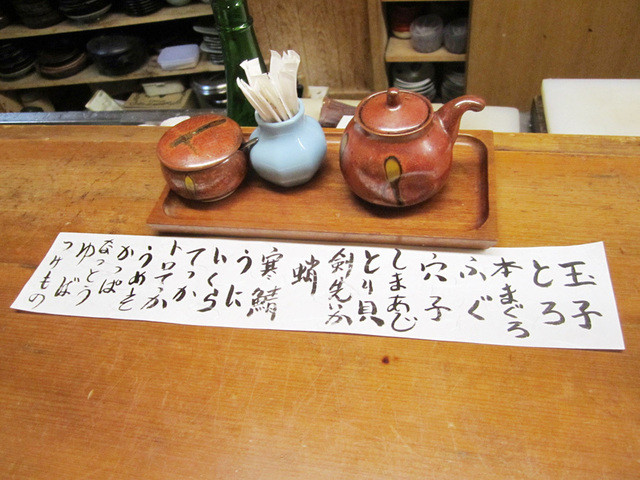 玉子
とろ
本まぐろ
ふぐ
穴子
しまあじ
とり貝
剣先いか
蛸
寒鯖
うに
いくら
てっか
トロてっか
うめしそ
かっぱ
なっとう
ゆば
つけもの